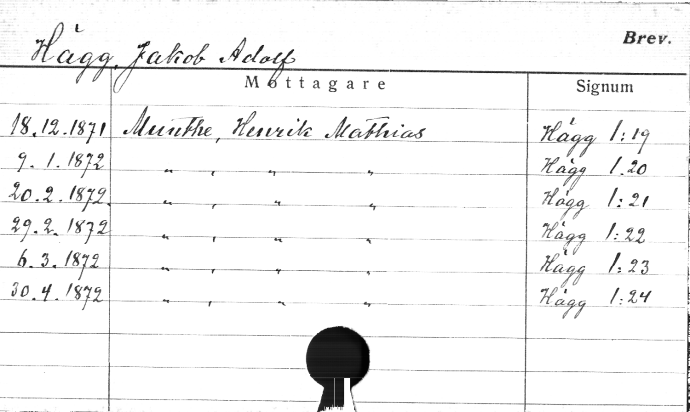 Brev.
Hägg, Jakob Adolf
Mottagare Signum
18.12.1871 Munthe, Henrik Mathias Hägg 1:19
9. 1. 1872 " , " " Hägg 1.20
20.2.1872. " , " " Hägg 1:21
29.2.1872 " , " " Hägg 1:22
6.3.1872 " , " " Hägg 1:23
30.4.1872 " , " " Hägg 1:24